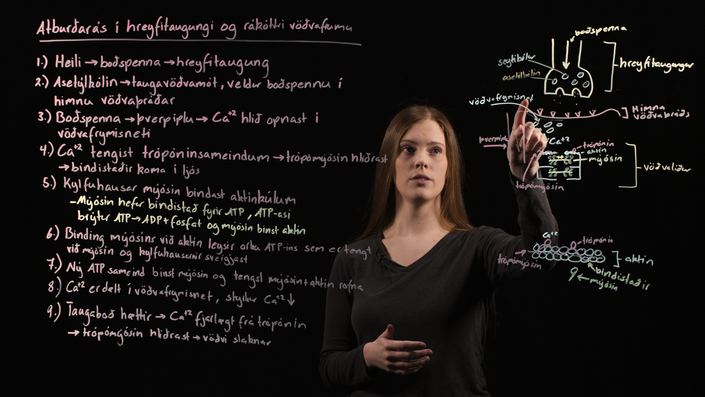 Atburðarás í hreyfitaugungi og rákóttri vöðvafrumu
1.) Heili → boðspenna → hreyfitaugung
2.) Asetýlkólín → taugavöðvamót, veldur boðspennu í
himnu vöðvaþráðar
3.) Boðspenna → þverpíplu → Ca⁺² hlið opnast í
vöðvafrymisneti
4.) Ca⁺² tengist trópóninsameindum → trópómýósín hliðrast
→ bindistaðir koma í ljós
5.) Kylfuhausar mýósíns bindast aktínkúlum
- Mýósín hefur bindistað fyrir ATP, ATP-asi
brýtur ATP → ADP + fosfat og mýósín binst aktín
6.) Binding mýósíns við aktín leysir orku ATP-ins sem er tengt
við mýósín og kylfuhausarnir sveigjast
7.) Ný ATP sameind binst mýósín og tengsl mýósín + aktín rofna
8.) Ca⁺² er dælt í vöðvafrymisnet, styrkur Ca⁺² ↓
9.) Taugaboð hættir → Ca⁺² fjarlægt frá trópónín
→ trópómýósín hliðrast → vöðvi slaknar
boðspenna
seytibólur
asetýlkólín
hreyfitaugungar
vöðvafrymisnet
Himna
vöðvaþráðs
Ca⁺²
trópónín
aktín
mýósín
vöðvaliður
trópómýósín
trópónín
trópómýósín
aktín
bindistaðir
mýósín